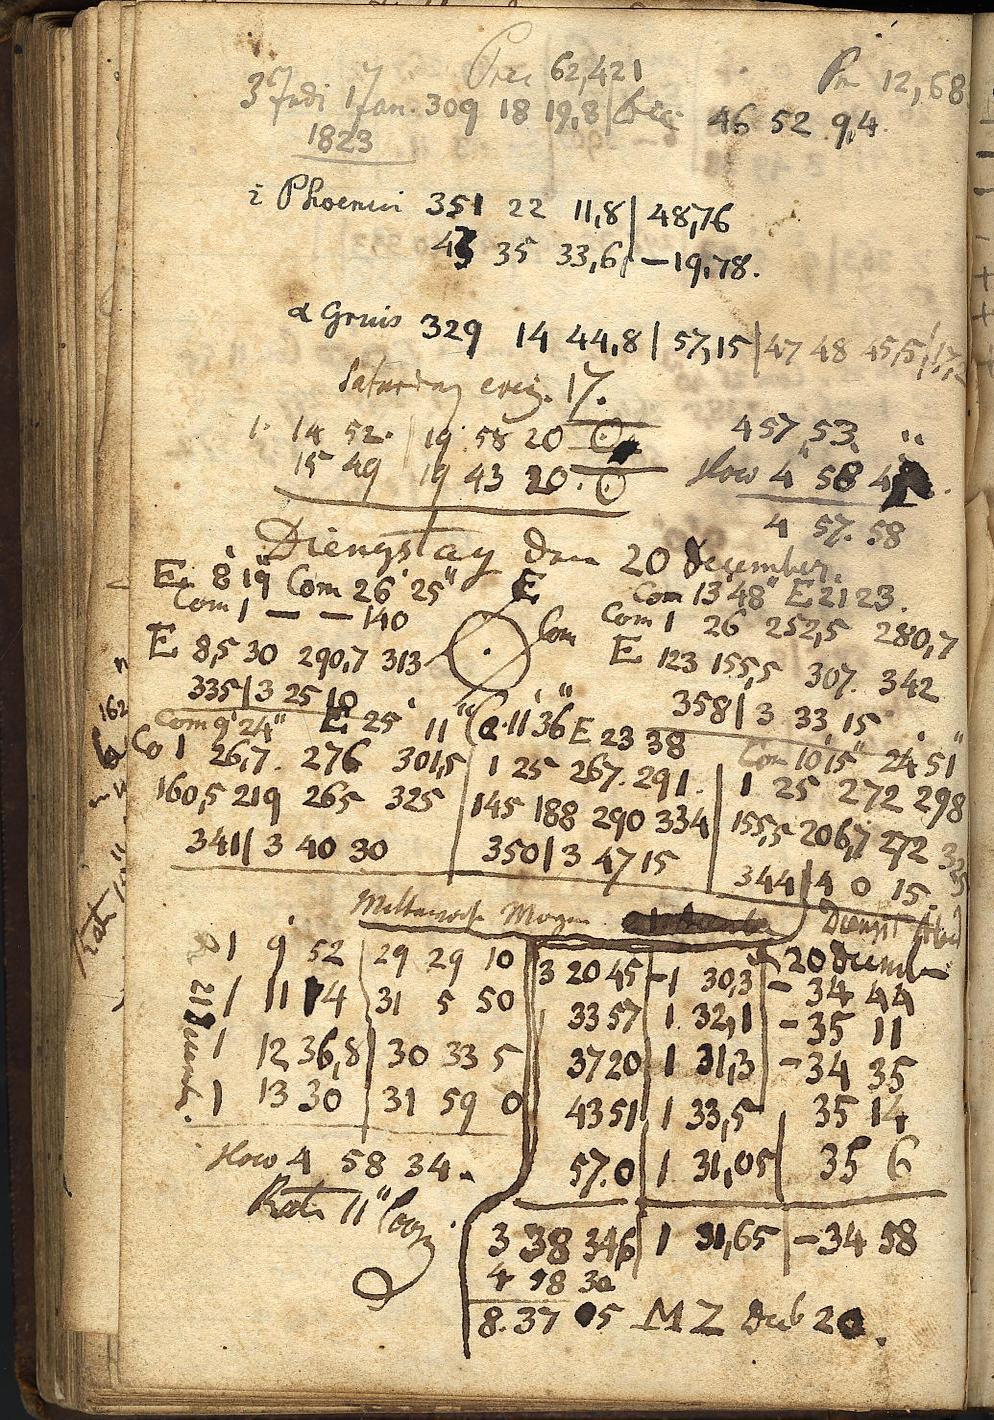 Prec 62,421 Pr 12,68
3 Indi 1 Jan. 309 18 19,8 | Decc. 46 52 9,4
1823
i Phoenici 351 22 11,8 | 48,76
43 35 33,6 | - 19,78.
α Gruis 329 14 44,8 | 57,15 | 47 48 45,5 | 17,
Saturday evg. 17.
1. 14 52. | 19 58 20 ☉ 4 57,53
15 49 | 19 43 20. ☉ Slow 4 58
4 57. 58
Diengstag den 20 December.
E. 8' 19" Com 26' 25" E Com 13' 48" E 21 23.
Com 1 — — 140 Com Com 1 26 252,5 280,7
E 8,5 30 290,7 313 E 123 155,5 307. 342
335 | 3 25 10 358 | 3 33, 15
Com 9' 24" E 25' 11" Co. 11' 36" E 23 38 Com 10' 15" 24' 51"
Co 1 26,7. 276 301,5 | 1 25 267. 291. | 1 25 272 298
160,5 219 265 325 | 145 188 290 334 | 155,5 206,7 272
341 | 3 40 30 350 | 3 47 15 344 | 4 0 15.
162
Mittewoch Morgen Dienst Abend
1 9' 52 | 29 29 10 3 20 45 - 1 30,3 20 Decemb
1 11 14 | 31 5 50 33 57 | 1. 32,1 - 34 44
1 12 36,8 | 30 33 5 37 20 | 1 31,3 - 35 11
1 13 30 | 31 59 0 43 51 | 1 33,5 - 34 35
21
Slow 4 58 34. 35 14
57.0 | 1 31,05 35 6
Rate 11"
3 38 34,6 | 1 31,65 | - 34 58
4 58 30
8. 37 05 M Z Decb 20.